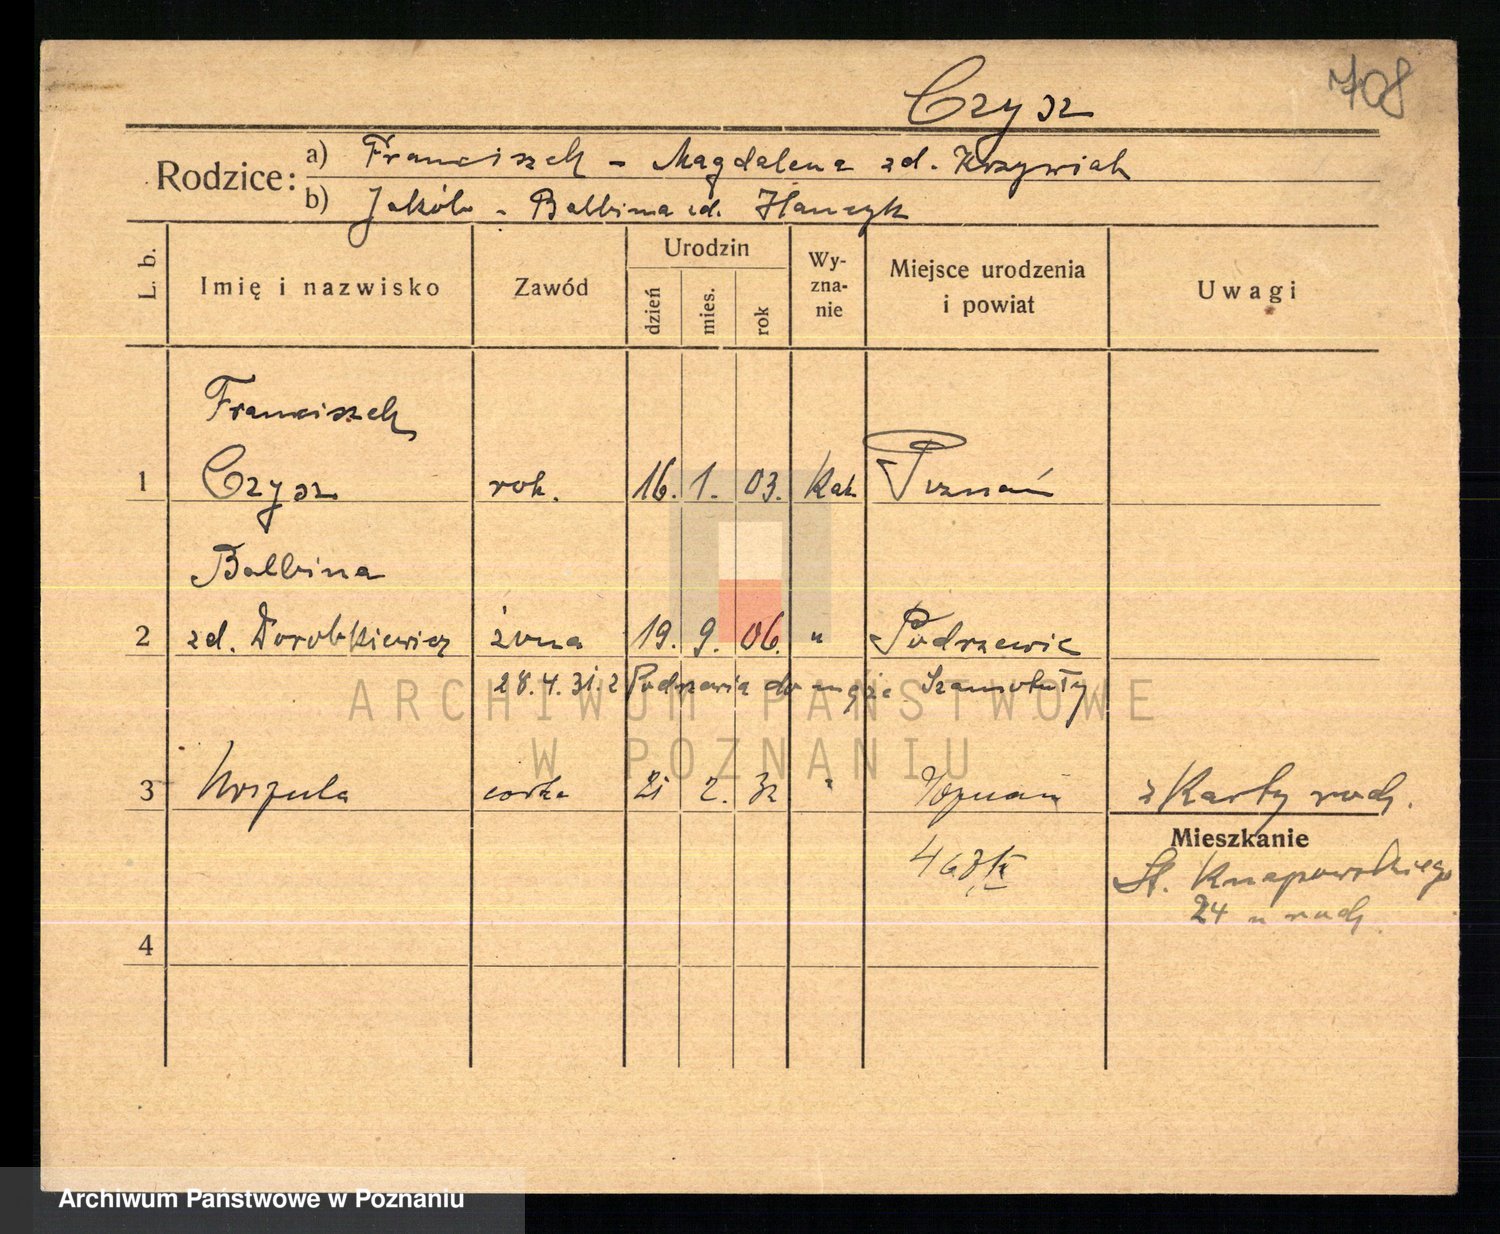 708
Czysz
Rodzice:
a) Franciszek - Magdalena zd. Krzywiak
b) Jakób - Balbina zd. Hanczyk
L. b.
Imię i nazwisko
Zawód
Urodzin
dzień
mies.
rok
Wy-
zna-
nie
Miejsce urodzenia
i powiat
Uwagi
Franciszek
1 Czysz rob. 16. 1. 03. Kat Poznań
Balbina
2 zd. Dorobkiewicz żona 19. 9. 06. " Podrzewie
28.4.31. z Podrzewia do męża Szamotuły
3 Urszula córka 21 2. 32 " Poznań z Karty rodz.
Mieszkanie
St. Knapowskiego
24 u rodz.
4
ARCHIWUM PAŃSTWOWE
W POZNANIU
Archiwum Państwowe w Poznaniu